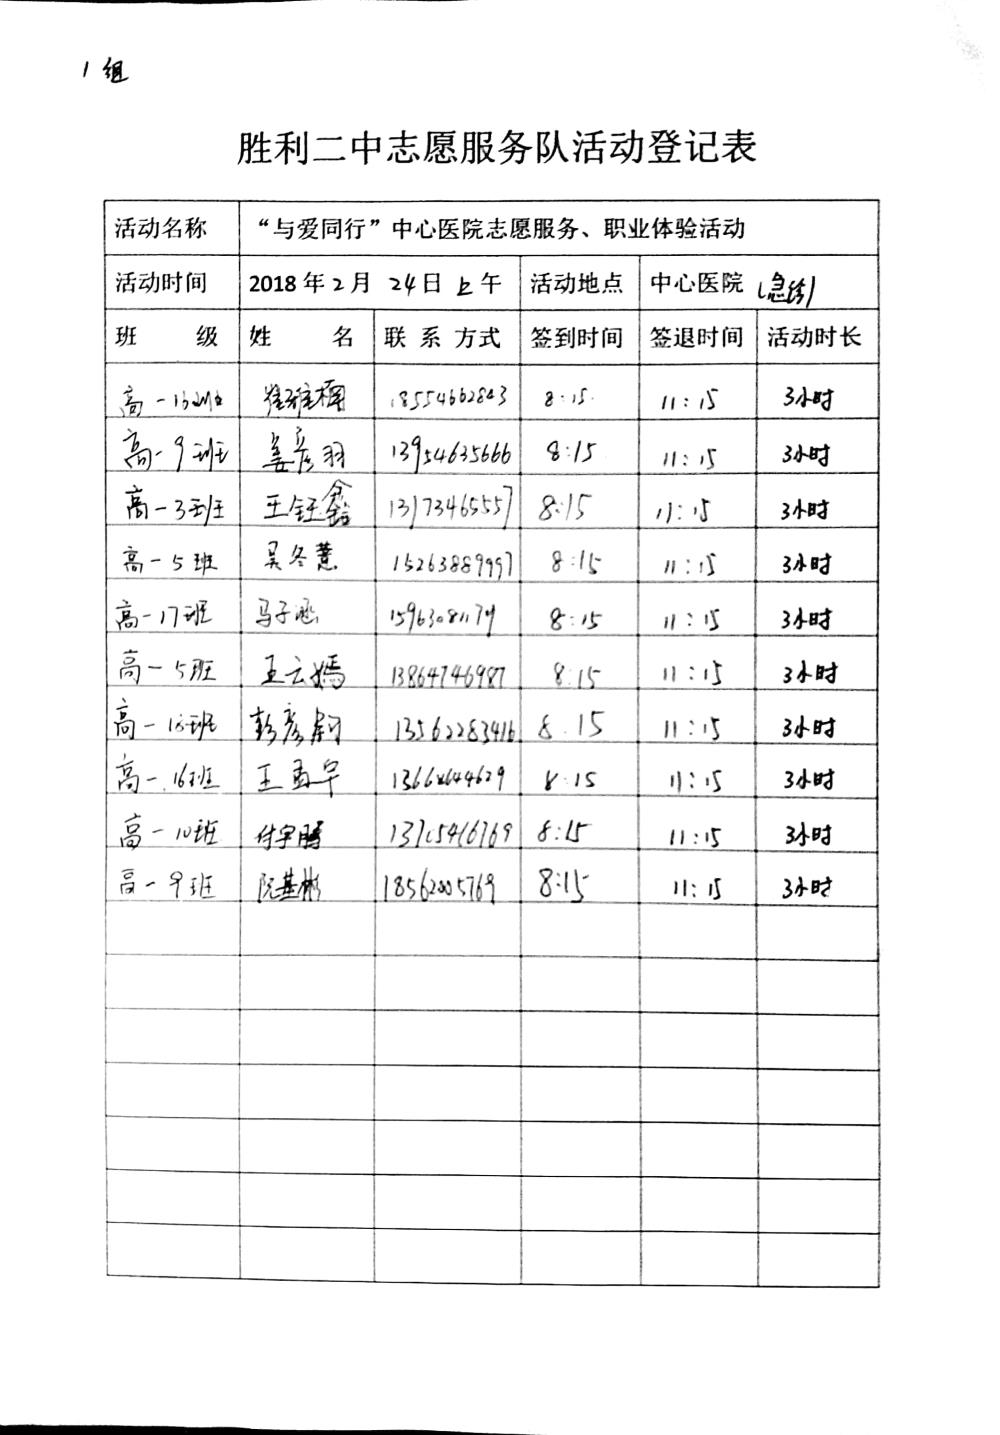 1组
胜利二中志愿服务队活动登记表
活动名称 “与爱同行”中心医院志愿服务、职业体验活动
活动时间 2018年2月 24日上午 活动地点 中心医院(急诊)
班 级 姓 名 联系方式 签到时间 签退时间 活动时长
高一13班 崔雅楠 18554662843 8:15 11:15 3小时
高一9班 姜彦羽 13954635666 8:15 11:15 3小时
高一3班 王钰鑫 13173465557 8:15 11:15 3小时
高一5班 吴冬慧 15263889997 8:15 11:15 3小时
高一17班 马子涵 8:15 11:15 3小时
高一5班 王云嫣 13864746987 8:15 11:15 3小时
高一 班 彭彦 13562283416 8:15 11:15 3小时
高一16班 王孟早 8:15 11:15 3小时
高一10班 付宇腾 8:15 11:15 3小时
高一9班 阮基彬 18562005769 8:15 11:15 3小时